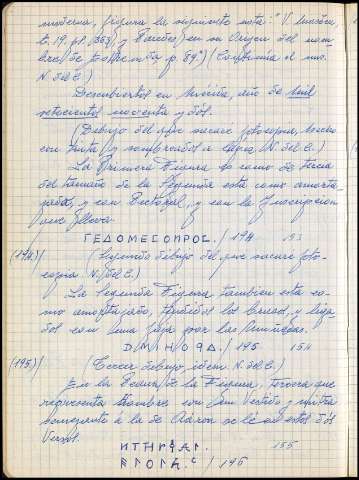 moderna, figura la siguiente nota: "V.
t. 19. pl. 368, y en su Origen del nom-
bre de p. 89") (Continúa el ms.
N. del C.)
Descubiertos en año de mil
setecientos noventa y dós.
(Dibujo del que sacaré fotocopia, hecho
con tinta y sombreados a lápiz. (N. del C.)
La Primera Figura como de tercia
del tamaño de la Segunda está como amorta-
jada, y con Pectoral, y con la Ynscripcion
que lleva.
ΓΕΔΟΜΕCΟΠROC. / 194 193
(194)/ (Segundo dibujo del que sacaré foto-
copia. N. del C.)
La Segunda Figura tambien está co-
mo amortajado, tendidos los brazos, y liga-
dos con una faja por las muñecas.
/ 195 154
(195)/ (Tercer dibujo, idem N. del C.)
En la de la Figura, Tercera que
representa Hombre con Vestido y mitra
semejante a la de Aaron se lé en estos dós
Versos.
155
/ 196